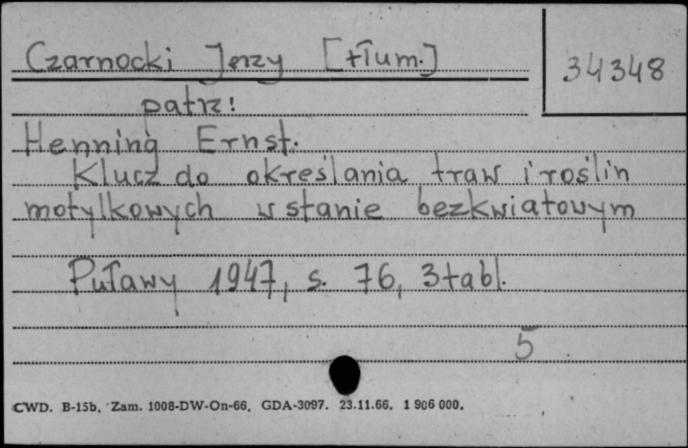 Czarnocki Jerzy [tłum.]
34348
patrz!
Henning Ernst.
Klucz do określania traw i roślin
motylkowych w stanie bezkwiatowym
Puławy 1947, s. 76, 3 tabl.
5
CWD. B-15b. Zam. 1008-DW-On-66. GDA-3097. 23.11.66. 1 906 000.